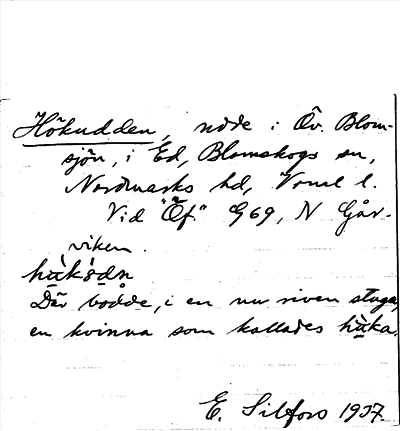 Hökudden, udde i Öv. Blom-
sjön, i Ed, Blomskogs sn,
Nordmarks hd, Vrml l.
Vid "Öf." G69, N Går-
viken.
Där bodde, i en nu riven stuga,
en kvinna som kallades
E. Silfors 1937